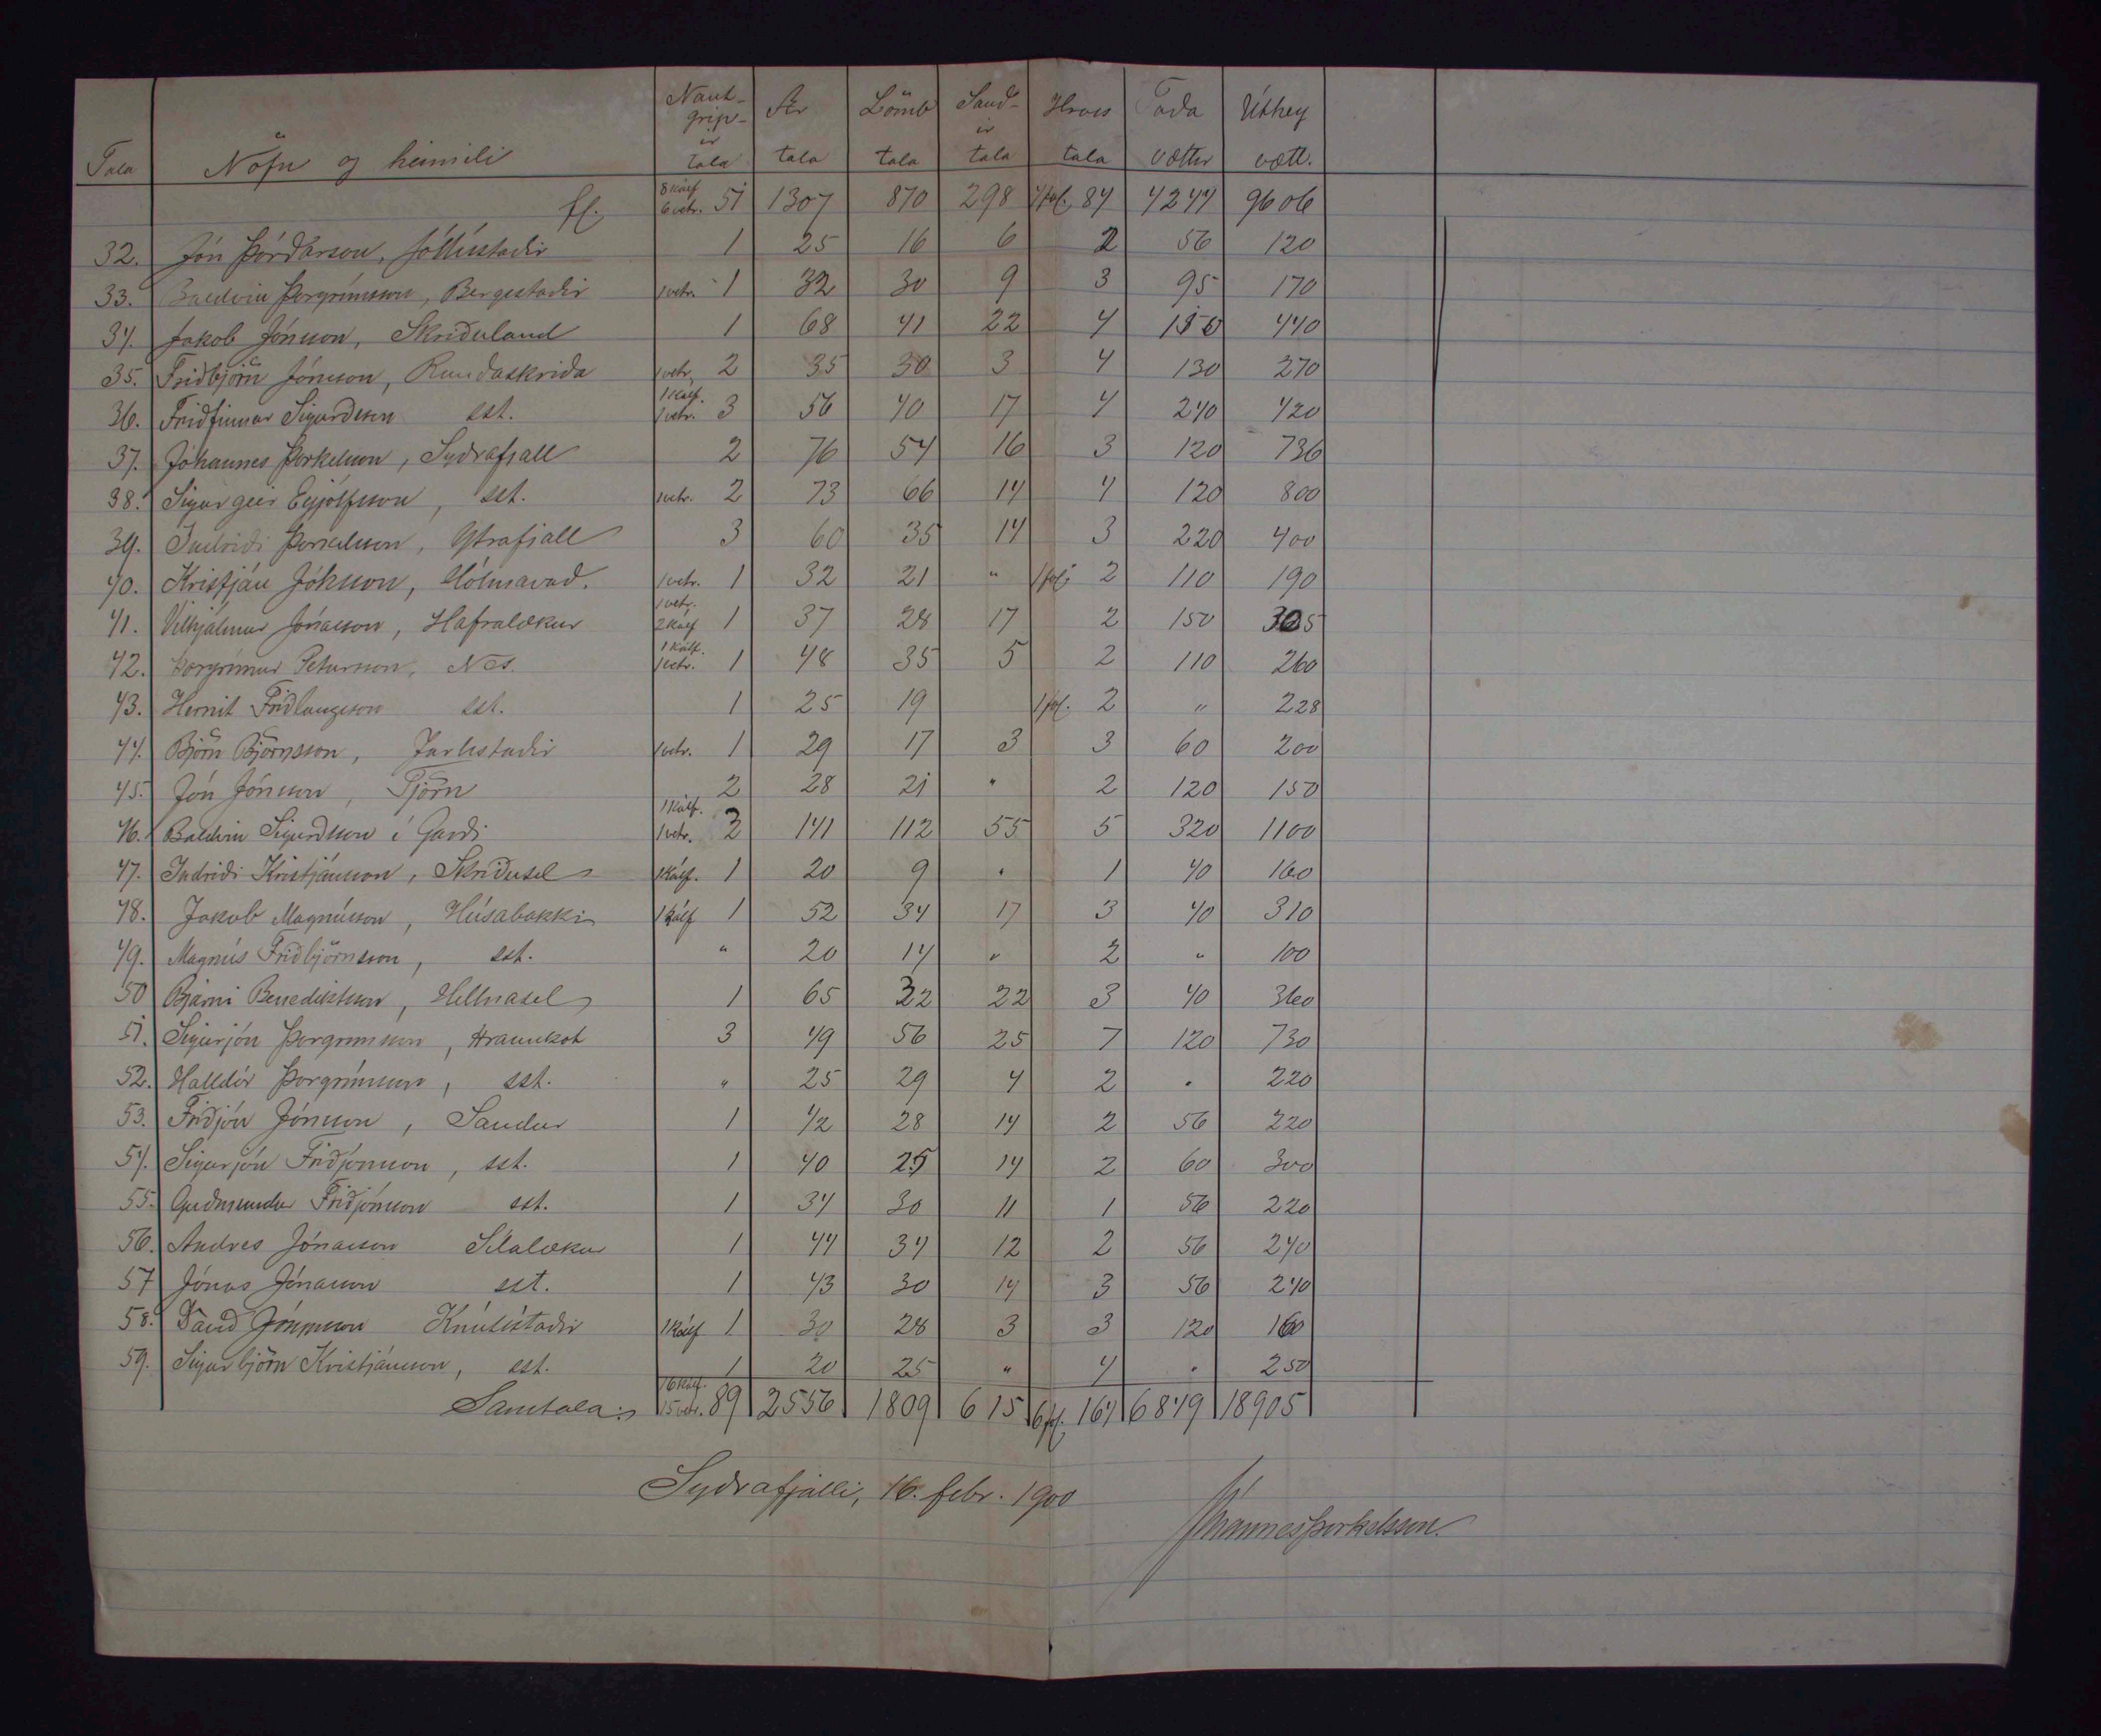 Naut- Ær Lömb Sauð- Hross Taða Úthey
grip- ir
ir
Tala Nöfn og heimili tala tala tala tala tala vættir vætt.
fl. 8 kálf 6 vetr. 51 1307 870 298 4 fol. 84 4244 9606
32. Jón Þórðarson, Jódísstaðir 1 25 16 6 2 56 120
33. Baldvin Þorgrímsson, Bergsstaðir 1 vetr. 1 32 30 9 3 95 170
34. Jakob Jónsson, Skriðuland 1 68 41 22 4 150 440
35. Friðbjörn Jónsson, Rauðaskriða 1 vetr. 2 35 30 3 4 130 270
36. Friðfinnur Sigurðsson sst. 1 kálf. 1 vetr. 3 56 40 17 4 240 420
37. Jóhannes Þorkelsson, Syðrafjall 2 76 54 16 3 120 736
38. Sigurgeir Eyjólfsson, sst. 1 vetr. 2 73 66 14 4 120 800
39. Indriði Þorkelsson, Ytrafjall 3 60 35 14 3 220 400
40. Kristján Jónsson, Hólmavað. 1 vetr. 1 32 21 " 1 fol. 2 110 190
41. Vilhjálmur Jónasson, Hafralækur 1 vetr. 2 kálf 1 37 28 17 2 150 305
42. Þorgrímur Pétursson, Nes. 1 kálf. 1 vetr. 1 48 35 5 2 110 260
43. Hernit Friðlaugsson sst. 1 25 19 1 fol. 2 " 228
44. Björn Björnsson, Jarlsstaðir 1 vetr. 1 29 17 3 3 60 200
45. Jón Jónsson, Tjörn 2 28 21 " 2 120 150
46. Baldvin Sigurðsson í Garði 1 kálf. 1 vetr. 3 141 112 55 5 320 1100
47. Indriði Kristjánsson, Skriðusel 1 kálf. 1 20 9 " 1 40 160
48. Jakob Magnússon, Húsabakki 1 kálf 1 52 34 17 3 40 310
49. Magnús Friðbjörnsson, sst. " 20 14 " 2 " 100
50 Bjarni Benediktsson, Hellnasel 1 65 32 22 3 40 360
51. Sigurjón Þorgrímsson, Hraunkot 3 49 56 25 7 120 730
52. Halldór Þorgrímsson, sst. " 25 29 4 2 " 220
53. Friðjón Jónsson, Sandur 1 42 28 14 2 56 220
54. Sigurjón Friðjónsson, sst. 1 40 25 14 2 60 300
55. Guðmundur Friðjónsson sst. 1 34 30 11 1 56 220
56. Andres Jónasson Sílalækur 1 44 34 12 2 56 240
57 Jónas Jónasson sst. 1 43 30 14 3 56 240
58. Davíð Jónsson Knútsstaðir 1 kálf 1 30 28 3 3 120 160
59. Sigurbjörn Kristjánsson, sst. 1 20 25 " 4 " 250
Samtala: 16 kálf. 15 vetr. 89 2556 1809 615 6 fol. 164 6849 18905
Syðrafjalli, 16. febr. 1900
Jóhannes Þorkelsson.